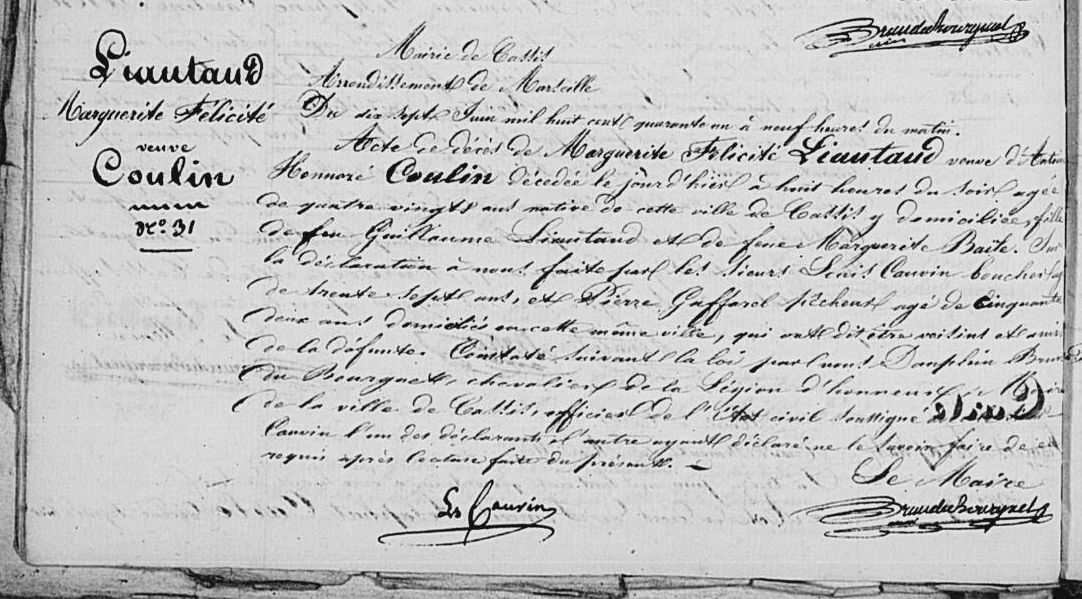 Brun du Bourguet
Liautaud
Marguerite Félicité
veuve
Coulin
N.º 31
Mairie de Cassis
Arrondissement de Marseille
Du dix sept Juin mil huit cent quarante un à neuf heures du matin.
Acte de décès de Marguerite Félicité Liautaud veuve d'Antoine
Honnoré Coulin décédée le jour d'hier à huit heures du soir agée
de quatre vingts ans native de cette ville de Cassis y domiciliée, fille
de feu Guillaume Liautaud et de feue Marguerite Baile. Sur
la déclaration à nous faite par les sieurs Louis Cauvin boucher agé
de trente sept ans, et Pierre Gaffarel pêcheur agé de cinquante
deux ans domiciliés en cette même ville, qui ont dit être voisins et amis
de la défunte. Constaté suivant la loi par nous Dauphin Brun
du Bourguet, chevalier de la Légion d'honneur Maire
de la ville de Cassis, officier de l'état civil soussigné
Cauvin l'un des déclarants l'autre ayant déclaré ne le savoir faire de ce
requis après lecture faite du présent.
Le Maire
Ls Cauvin
Brun du Bourguet